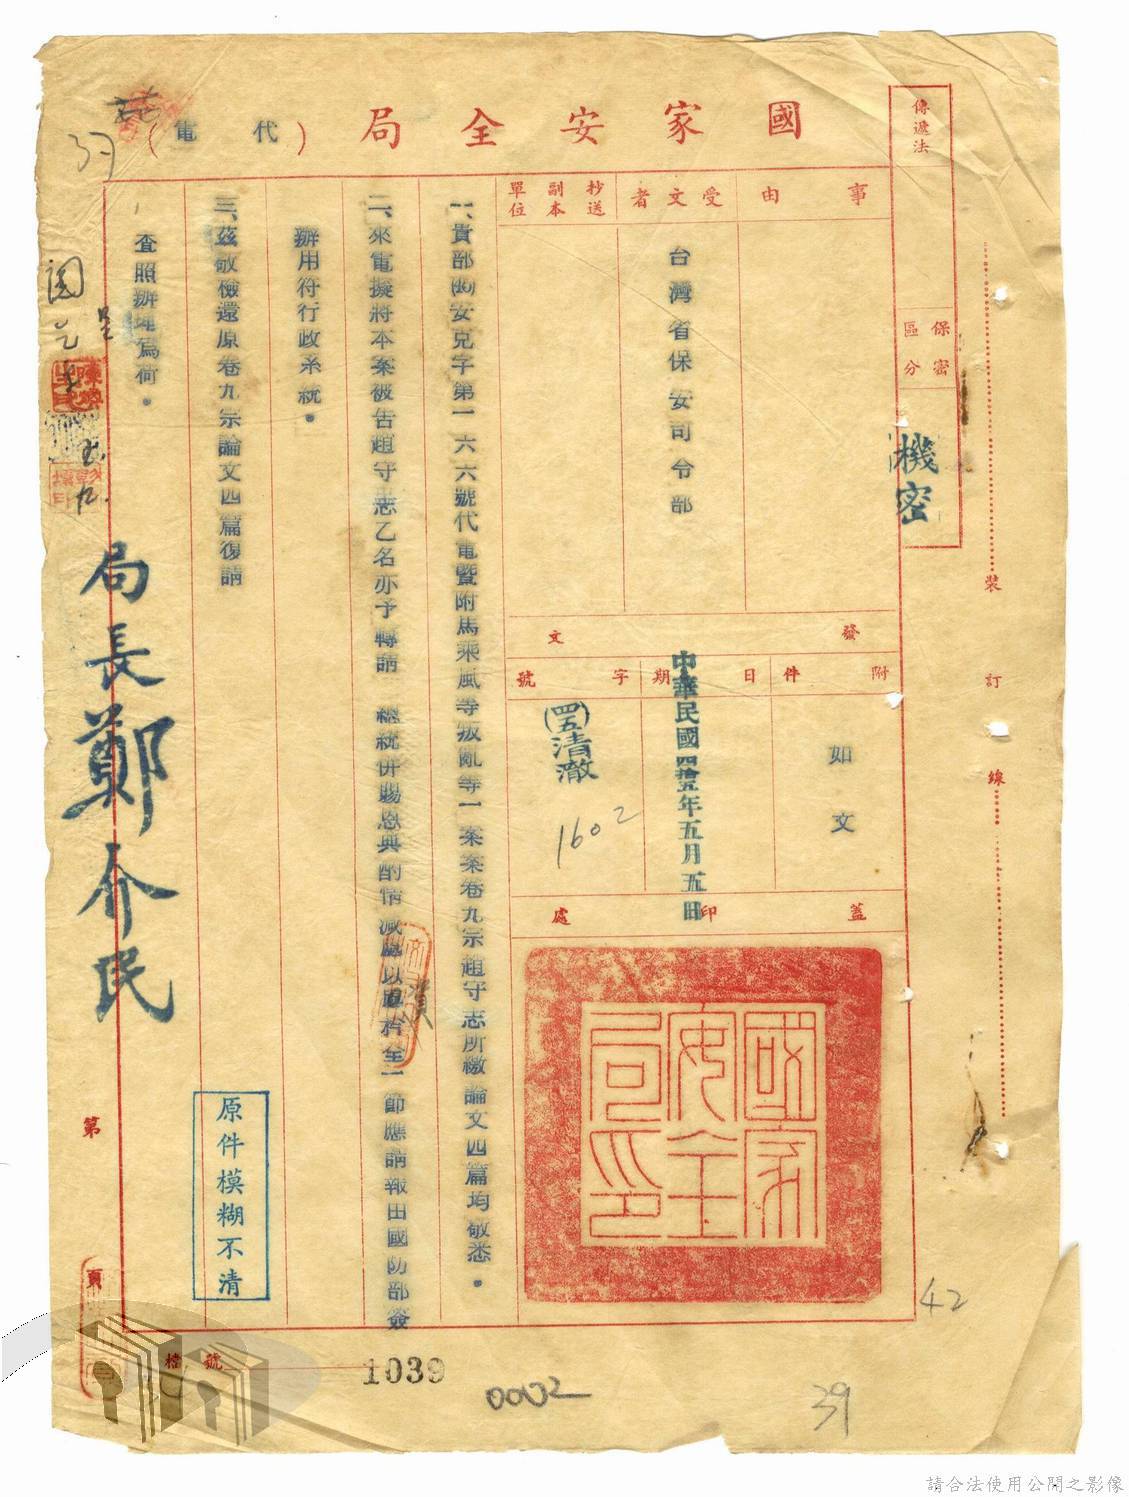 國家安全局（代電）
傳遞法
保密區分
機密
事由
受文者
抄送副本單位
台灣省保安司令部
發文
附件
日期
字號
如文
中華民國四拾五年五月五日
(四五)清澈
1602
蓋印處
國家安全局印
一、貴部(45)安克字第一六六號代電暨附馬乘風等叛亂等一案案卷九宗趙守志所繳論文四篇均敬悉。
二、來電擬將本案被告趙守志乙名亦予轉請 總統併賜恩典酌情減處以
一節應請報由國防部簽
辦用符行政系統。
三、茲敬檢還原卷九宗論文四篇復請
查照辦理為荷。
局長鄭介民
原件模糊不清
裝
訂
線
第
頁
檔號
1039
0002
39
42
39
請合法使用公開之影像